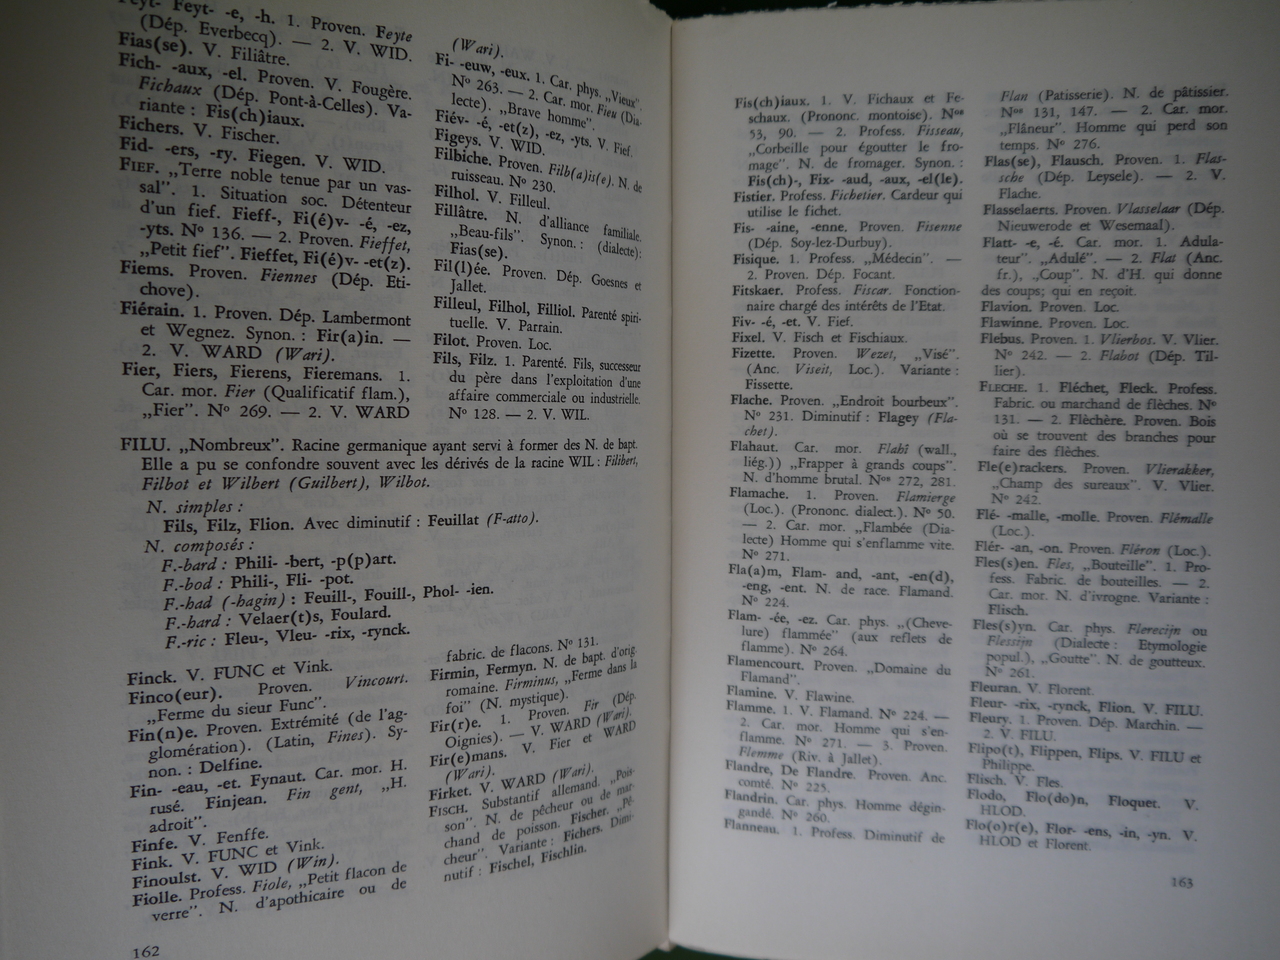 Feyt- Feyt- -e, -h. 1. Proven. Feyte
(Dép. Everbecq). — 2. V. WID.
Fias(se). V. Filiâtre.
Fich- -aux, -el. Proven. V. Fougère.
Fichaux (Dép. Pont-à-Celles). Va-
riante : Fis(ch)iaux.
Fichers. V. Fischer.
Fid- -ers, -ry. Fiegen. V. WID.
FIEF. „Terre noble tenue par un vas-
sal”. 1. Situation soc. Détenteur
d'un fief. Fieff-, Fi(é)v- -é, -ez,
-yts. N° 136. — 2. Proven. Fieffet,
„Petit fief”. Fieffet, Fi(é)v- -et(z).
Fiems. Proven. Fiennes (Dép. Eti-
chove).
Fiérain. 1. Proven. Dép. Lambermont
et Wegnez. Synon. : Fir(a)in. —
2. V. WARD (Wari).
Fier, Fiers, Fierens, Fieremans. 1.
Car. mor. Fier (Qualificatif flam.),
„Fier”. N° 269. — 2. V. WARD
(Wari).
Fi- -euw, -eux. 1. Car. phys. „Vieux”.
N° 263. — 2. Car. mor. Fieu (Dia-
lecte). „Brave homme”.
Fiév- -é, -et(z), -ez, -yts. V. Fief.
Figeys. V. WID.
Filbiche. Proven. Filb(a)is(e). N. de
ruisseau. N° 230.
Filhol. V. Filleul.
Fillâtre. N. d'alliance familiale.
„Beau-fils”. Synon. : (dialecte):
Fias(se).
Fil(l)ée. Proven. Dép. Goesnes et
Jallet.
Filleul, Filhol, Filliol. Parenté spiri-
tuelle. V. Parrain.
Filot. Proven. Loc.
Fils, Filz. 1. Parenté. Fils, successeur
du père dans l'exploitation d'une
affaire commerciale ou industrielle.
N° 128. — 2. V. WIL.
FILU. „Nombreux”. Racine germanique ayant servi à former des N. de bapt.
Elle a pu se confondre souvent avec les dérivés de la racine WIL : Filibert,
Filbot et Wilbert (Guilbert), Wilbot.
N. simples :
Fils, Filz, Flion. Avec diminutif : Feuillat (F-atto).
N. composés :
F.-bard : Phili- -bert, -p(p)art.
F.-bod : Phili-, Fli- -pot.
F.-had (-hagin) : Feuill-, Fouill-, Phol- -ien.
F.-hard : Velaer(t)s, Foulard.
F.-ric : Fleu-, Vleu- -rix, -rynck.
Finck. V. FUNC et Vink.
Finco(eur). Proven. Vincourt.
„Ferme du sieur Func”.
Fin(n)e. Proven. Extrémité (de l'ag-
glomération). (Latin, Fines). Sy-
non. : Delfine.
Fin- -eau, -et. Fynaut. Car. mor. H.
rusé. Finjean. Fin gent, „H.
adroit”.
Finfe. V. Fenffe.
Fink. V. FUNC et Vink.
Finoulst. V. WID (Win).
Fiolle. Profess. Fiole, „Petit flacon de
verre”. N. d'apothicaire ou de
fabric. de flacons. N° 131.
Firmin, Fermyn. N. de bapt. d'orig.
romaine. Firminus, „Ferme dans la
foi” (N. mystique).
Fir(r)e. 1. Proven. Fir (Dép.
Oignies). — V. WARD (Wari).
Fir(e)mans. V. Fier et WARD
(Wari).
Firket. V. WARD (Wari).
FISCH. Substantif allemand. „Pois-
son”. N. de pêcheur ou de mar-
chand de poisson. Fischer. „Pê-
cheur”. Variante : Fichers. Dimi-
nutif : Fischel, Fischlin.
162
Fis(ch)iaux. 1. V. Fichaux et Fe-
schaux. (Prononc. montoise). Nos
53, 90. — 2. Profess. Fisseau,
„Corbeille pour égoutter le fro-
mage”. N. de fromager. Synon. :
Fis(ch)-, Fix- -aud, -aux, -el(le).
Fistier. Profess. Fichetier. Cardeur qui
utilise le fichet.
Fis- -aine, -enne. Proven. Fisenne
(Dép. Soy-lez-Durbuy).
Fisique. 1. Profess. „Médecin”. —
2. Proven. Dép. Focant.
Fitskaer. Profess. Fiscar. Fonction-
naire chargé des intérêts de l'Etat.
Fiv- -é, -et. V. Fief.
Fixel. V. Fisch et Fischiaux.
Fizette. Proven. Wezet, „Visé”.
(Anc. Viseit, Loc.). Variante :
Fissette.
Flache. Proven. „Endroit bourbeux”.
N° 231. Diminutif : Flagey (Fla-
chet).
Flahaut. Car. mor. Flahî (wall.,
liég.)) „Frapper à grands coups”.
N. d'homme brutal. Nos 272, 281.
Flamache. 1. Proven. Flamierge
(Loc.). (Prononc. dialect.). N° 50.
— 2. Car. mor. „Flambée (Dia-
lecte) Homme qui s'enflamme vite.
N° 271.
Fla(a)m, Flam- and, -ant, -en(d),
-eng, -ent. N. de race. Flamand.
N° 224.
Flam- -ée, -ez. Car. phys. „(Cheve-
lure) flammée” (aux reflets de
flamme). N° 264.
Flamencourt. Proven. „Domaine du
Flamand”.
Flamine. V. Flawine.
Flamme. 1. V. Flamand. N° 224. —
2. Car. mor. Homme qui s'en-
flamme. N° 271. — 3. Proven.
Flemme (Riv. à Jallet).
Flandre, De Flandre. Proven. Anc.
comté. N° 225.
Flandrin. Car. phys. Homme dégin-
gandé. N° 260.
Flanneau. 1. Profess. Diminutif de
Flan (Patisserie). N. de pâtissier.
Nos 131, 147. — 2. Car. mor.
„Flâneur”. Homme qui perd son
temps. N° 276.
Flas(se), Flausch. Proven. 1. Flas-
sche (Dép. Leysele). — 2. V.
Flache.
Flasselaerts. Proven. Vlasselaar (Dép.
Nieuwerode et Wesemaal).
Flatt- -e, -é. Car. mor. 1. Adula-
teur”. „Adulé”. — 2. Flat (Anc.
fr.), „Coup”. N. d'H. qui donne
des coups; qui en reçoit.
Flavion. Proven. Loc.
Flawinne. Proven. Loc.
Flebus. Proven. 1. Vlierbos. V. Vlier.
N° 242. — 2. Flabot (Dép. Til-
lier).
FLECHE. 1. Fléchet, Fleck. Profess.
Fabric. ou marchand de flèches. N°
131. — 2. Flèchère. Proven. Bois
où se trouvent des branches pour
faire des flèches.
Fle(e)rackers. Proven. Vlierakker,
„Champ des sureaux”. V. Vlier.
N° 242.
Flé- -malle, -molle. Proven. Flémalle
(Loc.).
Flér- -an, -on. Proven. Fléron (Loc.).
Fles(s)en. Fles, „Bouteille”. 1. Pro-
fess. Fabric. de bouteilles. — 2.
Car. mor. N. d'ivrogne. Variante :
Flisch.
Fles(s)yn. Car. phys. Flerecijn ou
Flessijn (Dialecte : Etymologie
popul.), „Goutte”. N. de goutteux.
N° 261.
Fleuran. V. Florent.
Fleur- -rix, -rynck, Flion. V. FILU.
Fleury. 1. Proven. Dép. Marchin. —
2. V. FILU.
Flipo(t), Flippen, Flips. V. FILU et
Philippe.
Flisch. V. Fles.
Flodo, Flo(do)n, Floquet. V.
HLOD.
Flo(o)r(e), Flor- -ens, -in, -yn. V.
HLOD et Florent.
163